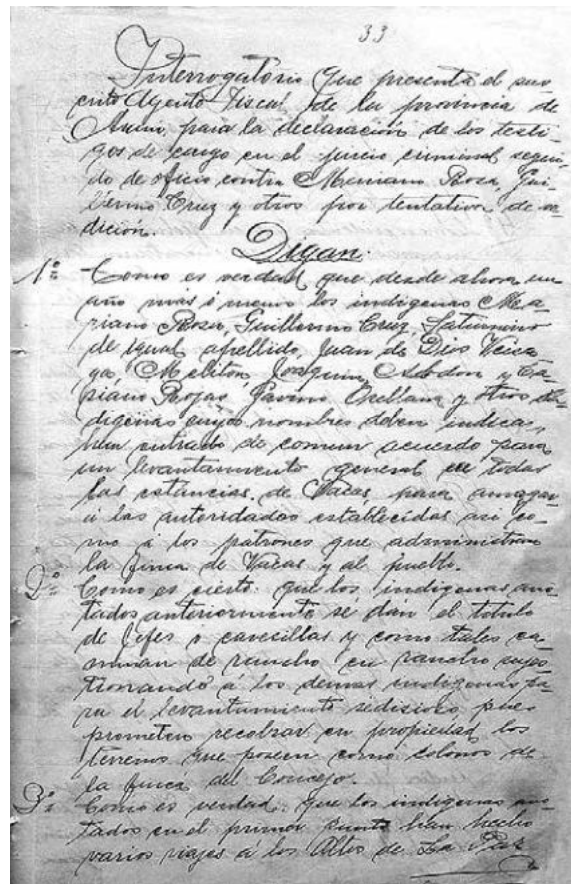 33
Interrogatorio que presenta el sus
crito Agente Fiscal de la provincia de
Arani, para la declaración de los testi-
gos de cargo en el juicio criminal segui-
do de oficio contra Mariano Rosa, Gui-
llermo Cruz y otros por tentativa de se-
dición.
Digan.
1º Como es verdad que desde ahora un
año mas ó menos los indigenas Ma-
riano Rosa, Guillermo Cruz, Saturnino
de igual apellido, Juan de Dios Veiza
ga Meliton, Joaquin, Abdon y Ca-
Rojas, Gavino Orellana y otros in-
digenas cuyos nombres deben indicar,
han entrado de comun acuerdo para
un levantamiento general en todas
las estancias de Vacas, para amagar
á las autoridades establecidas asi co-
mo á los patrones que administran
la finca de Vacas y al pueblo.
2º Como es cierto que los indigenas ano-
tados anteriormente se dan el titulo
de Jefes o cavecillas y como tales ca-
minan de rancho en rancho
á los demas indigenas pa-
ra el levantamiento sedisioso pues
prometen recobrar en propiedad los
terrenos que poseen como colonos de
la finca del Concejo.
3º Como es verdad que los indigenas ano-
tados en el primer punto han hecho
varios viajes á los Altos de La Paz